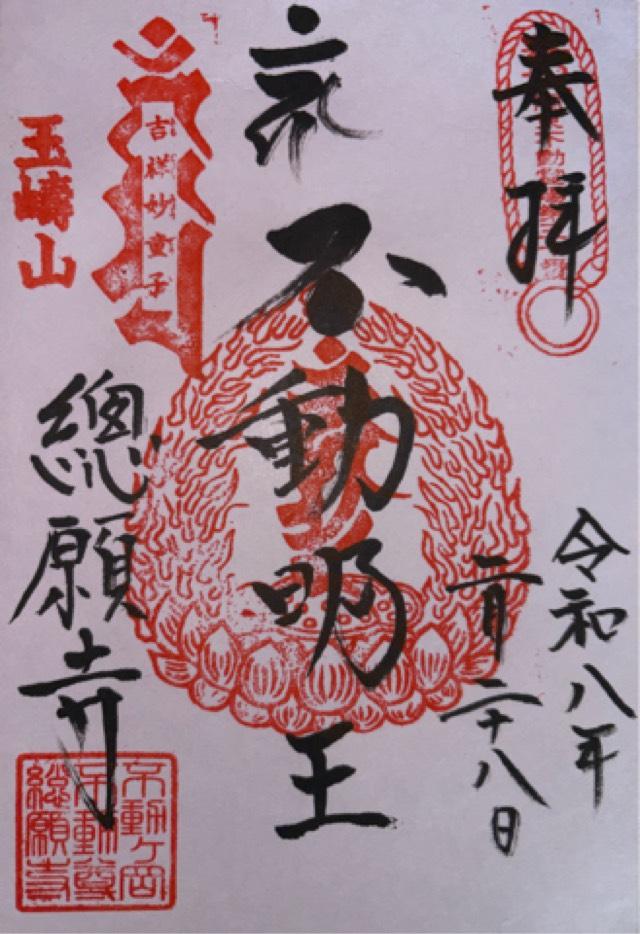 奉拝
令和八年
二月二十八日
不動明王
玉嶹山
吉祥妙童子
總願寺
不動ヶ岡
不動尊
總願寺